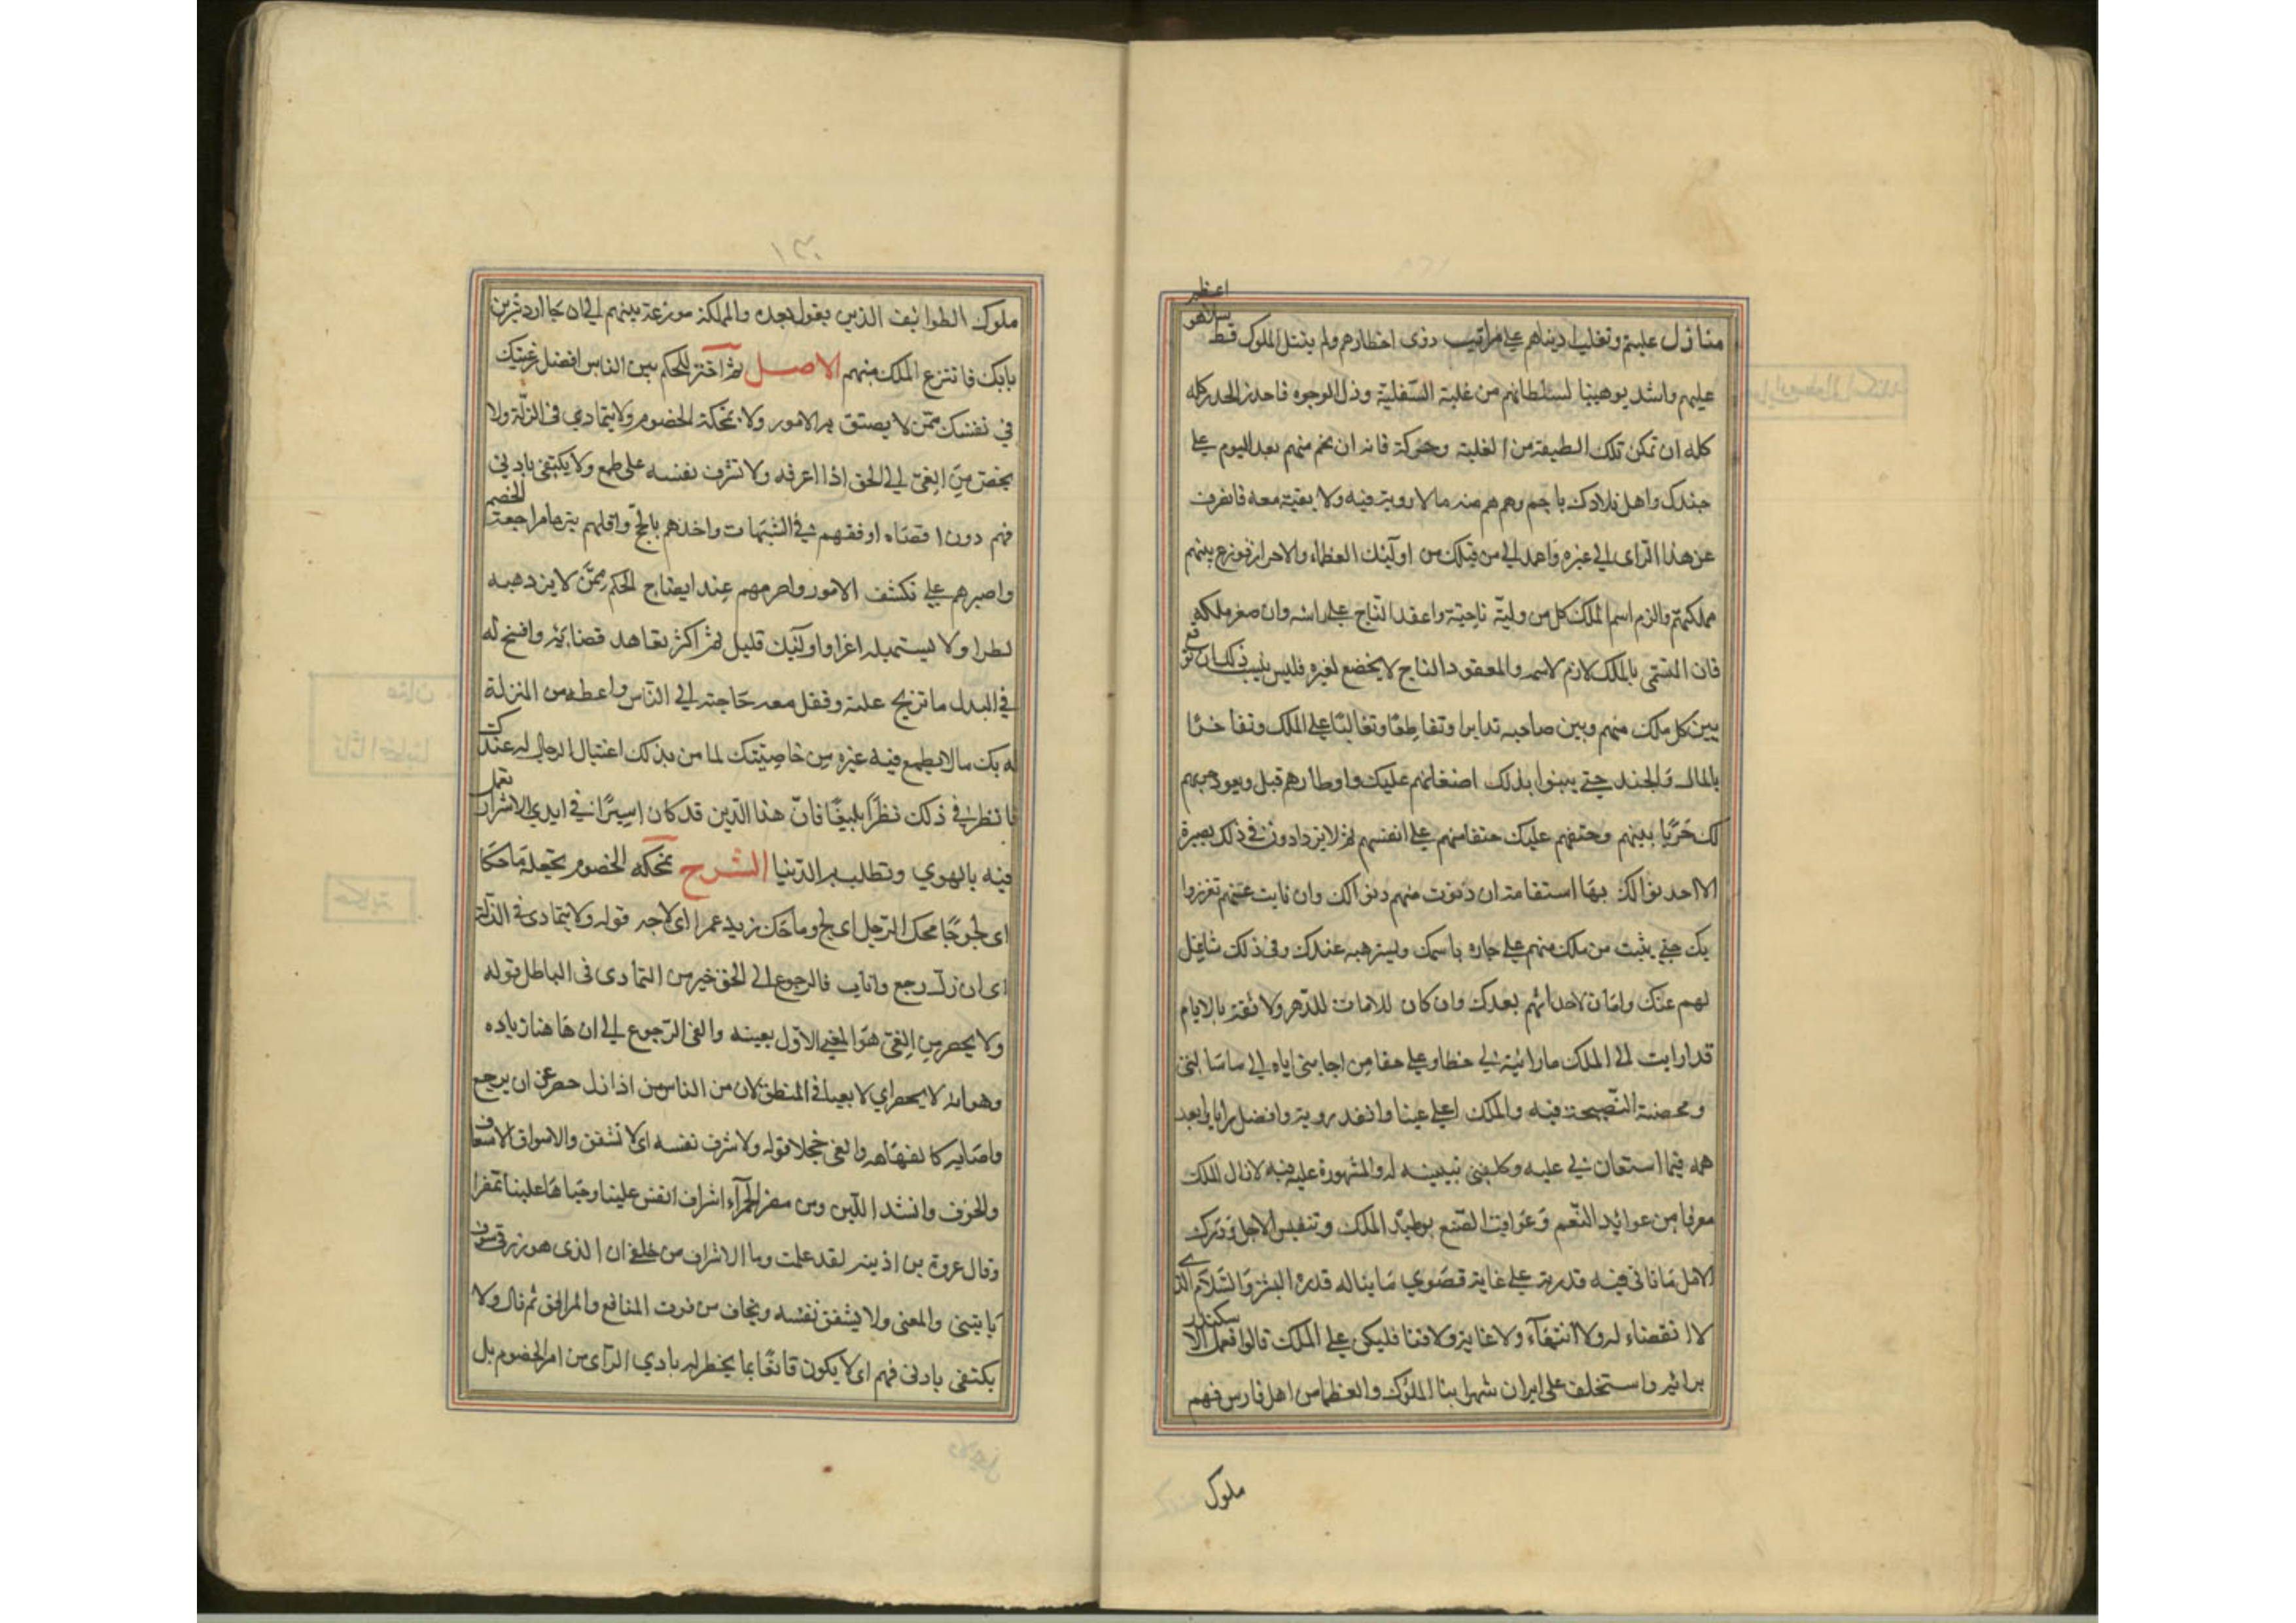 منازل عليتهم وتغليب ادنياهم على مراتب ذوى اخطارهم ولم يبتل الملوك قط
ببلاء هو اعظم
عليهم واشد يوهينا لسلطانهم من غلبة السفلية وذل الوجوه فاحذر الحذر كله
كله ان تمكن تلك الطبقة من الغلبة وحركة فانه ان نجم منهم بعد اليوم على
جندك واهل بلادك ناجم دهمهم منه ما لا روية فيه ولا بقية معه فانصرف
عن هذا الراى الى غيره واعمد الى من قبلك من اوليك العظماء والاحرار فوزع بينهم
مملكتهم والزم اسم الملك كل من وليته ناحيته واعقد التاج على راسه وان صغر ملكه
فان المتسمى بالملك لازم لاسمه والمعقود التاج لا يخضع لغيره فليس ينشب ذلك ان يقع
بين كل ملك منهم وبين صاحبه تدابرا وتقاطعا وتغالبا على الملك وتفاخرا
بالمال والجند حتى ينسوا بذلك اضغانهم عليك واوطارهم قبل ويعود حربهم
لك حربا بينهم وحنقهم عليك حنقا منهم على انفسهم ثم لا يزدادون فى ذلك بصيرة
الا احدثوا لك بها استقامة ان دنوت منهم دنوا لك وان نايت عنهم تعززوا
بك حتى يثبت من ملك منهم على جاره باسمك ويسترهبه بجندك وفى ذلك شاغل
لهم عنك وامان لاحداثهم بعدك وان كان لا امان للدهر ولا ثقة بالايام
قد اديت الى الملك ما رايته لى حظا وعلى حقا من اجابتى اياه الى ما سالنى
ومحضته النصيحة فيه والملك اعلى عينا وانفذ روية وافضل رايا وابعد
همه فيما استعان بى عليه وكلفنى تبيينه له والمشورة عليه فيه لا زال الملك
معرفا من عوائد النعم وعواقب الصنع بوطيد الملك وتنفيس الاجل ودرك
الامل ما تاتى فيه قدرته على غاية قصوى ما يناله قدرة البشر والسلام الذى
لا انقضاء له ولا انتهاء ولا غاية ولا فنا فليكن على الملك قالوا فعمل الاسكندر
برائه واستخلف على ايران شهر ابنا الملوك والعظما من اهل فارس فهم
ملوك
١٣٠
ملوك الطوائف الذين بقوا بعده والمملكة موزعة بينهم الى ان جا اردشير بن
بابك فانتزع الملك منهم الاصل ثم اختر للحكم بين الناس افضل رعيتك
فى نفسك ممن لا يضيق به الامور ولا تمحكه الخصوم ولا يتمادى فى الزلة ولا
يحصر من الفئ الى الحق اذا عرفه ولا تشرف نفسه على طمع ولا يكتفى بادنى
فهم دون اقصاه اوقفهم فى الشبهات واخذهم بالحج واقلهم تبرما مراجعة الخصم
واصبرهم على تكشف الامور واصرمهم عند ايضاح الحكم ممن لا يزدهيه
اطراء ولا يستميله اغرا واوليك قليل ثم اكثر تعاهد قضائه وافسح له
فى البدل ما تزيح علته وتقل معه حاجته الى الناس واعطه من المنزلة
لديك ما لا يطمع فيه غيره من خاصتك ليامن بذلك اغتيال الرجال له عندك
فانظر فى ذلك نظرا بليغا فان هذا الدين قد كان اسيرا فى ايدى الاشرار يعمل
فيه بالهوى وتطلب به الدنيا الشرح تمحكه الخصوم تجعله ماحكا
اى لجوجا محك الرجل اى لج وماحك زيد عمرا اى لاجه قوله ولا يتمادى فى الزلة
اى ان زل رجع واناب فالرجوع الى الحق خير من التمادى فى الباطل قوله
ولا يحصر من الفئ هو المعنى الاول بعينه والفئ الرجوع الى ان هاهنا زياده
وهو انه لا يحصر اى لا يعيا فى المنطق لان من الناس من اذا زل حصر عن ان يرجع
واصابه كالفهاهه والعى خجلا قوله ولا تشرف نفسه اى لا تشفق والاشراف الاشفاق
والخوف وانشد الليث ومن مضر الحمراء اشراف انفس علينا وحياها علينا تمضرا
وقال عروة بن اذينه لقد علمت وما الاشراف من خلقى ان الذى هو رزقى سوف
ياتينى والمعنى ولا يشفق نفسه ويخاف من فوت المنافع والمرافق ثم قال ولا
يكتفى بادنى فهم اى لا يكون قانعا بما يخطر له بادى الراى من امر الخصوم بل